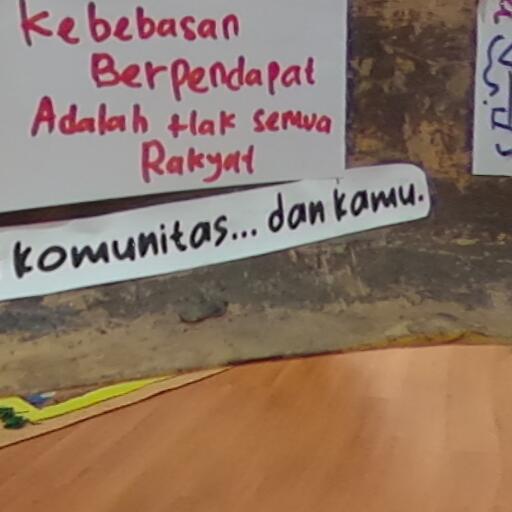 Kebebasan
Berpendapat
Adalah Hak semua
Rakyat
komunitas... dan kamu.